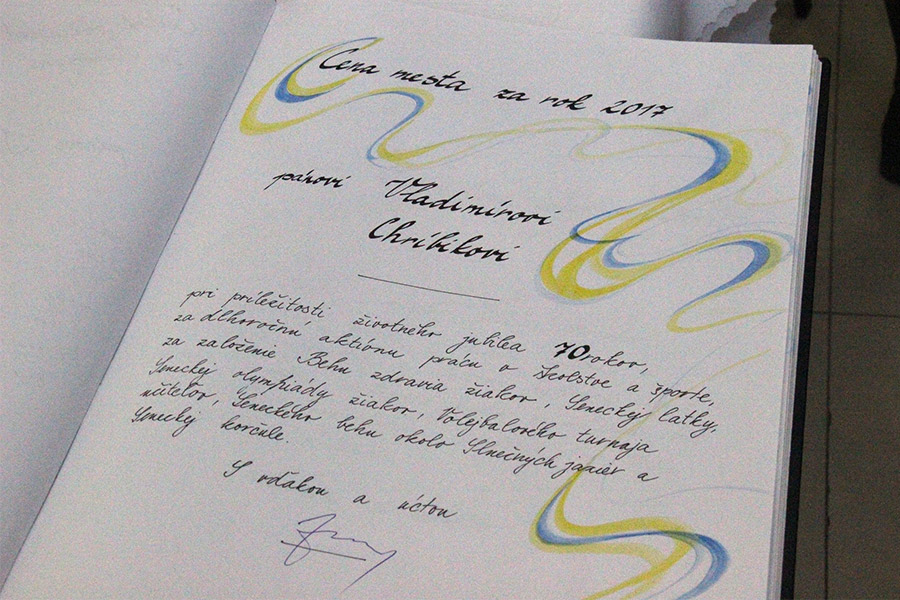 Cena mesta za rok 2017
pánovi Vladimírovi
Chribíkovi
pri príležitosti životného jubilea 70 rokov,
za dlhoročnú aktívnu prácu v školstve a športe,
za založenie Behu zdravia žiakov, Seneckej latky,
Seneckej olympiády žiakov, Volejbalového turnaja
učiteľov, Seneckého behu okolo Slnečných jazier a
Seneckej korčule.
S vďakou a úctou